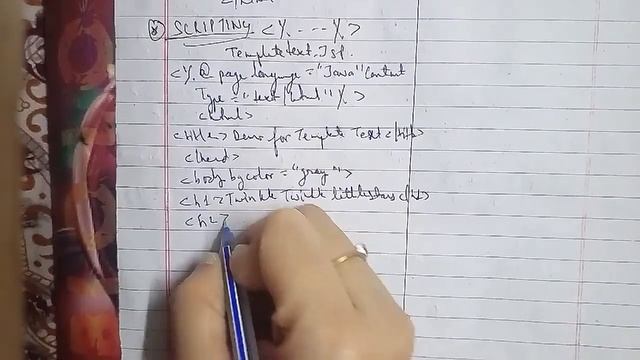 SCRIPTING <%. ---- %>
Templatetext.Jsp
<%@ page language = "Java" Content
Type = "text/html" %>
<html>
<title> Demo for Template Text </title>
<head>
<body bgcolor = "gray">
<h1> Twinkle Twinkle little stars </h1>
<h2>